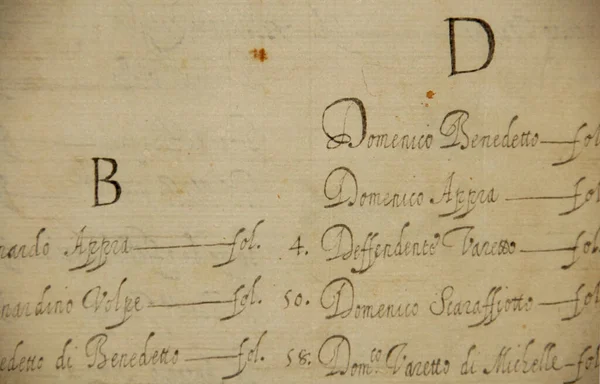 B
nardo Appra fol. 4.
nardino Volpe fol. 50.
edetto di Benedetto fol. 58.
D
Domenico Benedetto fol
Domenico Appra fol
Deffendente Varetto fol.
Domenico Scaraffiotto fol
Dom.co Varetto di Michelle fol